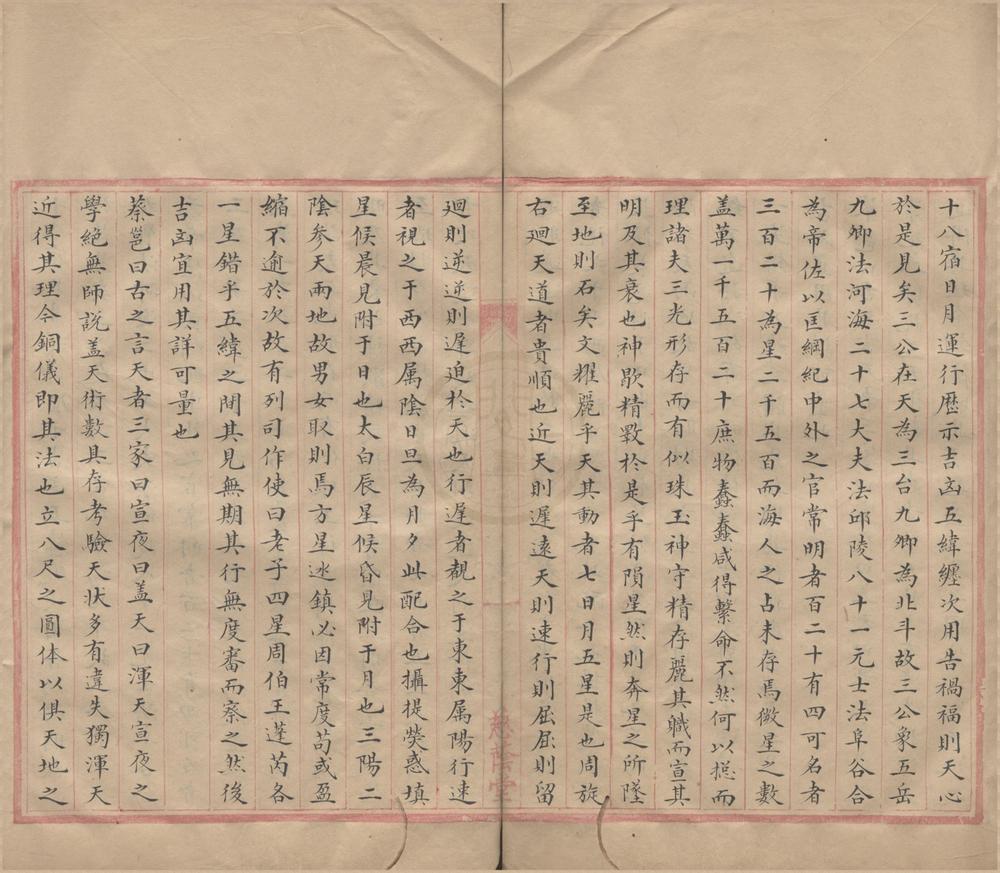 十八宿日月運行歷示吉凶五緯纏次用告禍福則天心
於是見矣三公在天為三台九卿為北斗故三公象五岳
九卿法河海二十七大夫法邱陵八十一元士法阜谷合
為帝佐以匡綱紀中外之官常明者百二十有四可名者
三百二十為星二千五百而海人之占未存焉微星之數
盖萬一千五百二十庶物蠢蠢咸得繫命不然何以摠而
理諸夫三光形存而有似珠玉神守精存麗其職而宣其
明及其衰也神歇精斁於是乎有隕星然則奔星之所墜
至地則石矣文耀麗乎天其動者七日月五星是也周旋
右廻天道者貴順也近天則遲遠天則速行則屈屈則留
廻則逆逆則遲迫於天也行遲者覩之于東東属陽行速
者視之于西西属陰日旦為月夕此配合也攝提熒惑填
星候晨見附于日也太白辰星候昏見附于月也三陽二
陰参天兩地故男女取則焉方星迯鎮必因常度苟或盈
縮不逾於次故有列司作使曰老子四星周伯王蓬芮各
一星錯乎五緯之間其見無期其行無度審而察之然後
吉凶宜用其詳可量也
蔡邕曰古之言天者三家曰宣夜曰盖天曰渾天宣夜之
學絕無師說盖天術數具存考驗天状多有違失獨渾天
近得其理今銅儀即其法也立八尺之圓体以俱天地之
慈蔭堂